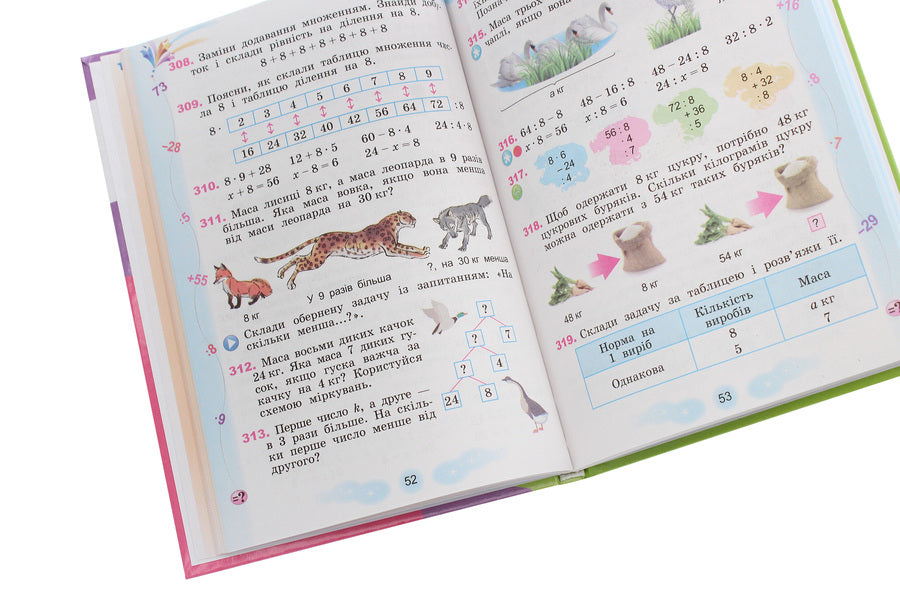 308. Заміни додавання множенням. Знайди добу-
ток і склади рівність на ділення на 8.
8 + 8 + 8 + 8 + 8 + 8 + 8
309. Поясни, як склали таблицю множення чис-
ла 8 і таблицю ділення на 8.
8 · 2 3 4 5 6 7 8 9
16 24 32 40 42 56 64 72 : 8
310. 8 · 9 + 28 12 + 8 · 5 60 − 8 · 4 24 : 4 · 8
x + 8 = 56 x − 8 = 6 24 − x = 8
311. Маса лисиці 8 кг, а маса леопарда в 9 разів
більша. Яка маса вовка, якщо вона менша
від маси леопарда на 30 кг?
8 кг
У 9 разів більша
?, на 30 кг менша
Склади обернену задачу із запитанням: «На
скільки менша...?».
312. Маса восьми диких качок
24 кг. Яка маса 7 диких гу-
сок, якщо гуска важча за
качку на 4 кг? Користуйся
схемою міркувань.
?
? 7
? 4
24 8
313. Перше число k, а друге —
в 3 рази більше. На скіль-
ки перше число менше від
другого?
73
−28
:5
+55
:8
·9
=?
52
315. Маса трьох
чаплі, якщо вона
a кг
316. 64 : 8 − 8 48 − 16 : 8 48 − 24 : 8 32 : 8 · 2
x · 8 = 56 x : 8 = 6 24 : x = 8
317.
8 · 6
− 24
: 4
56 : 8
· 4
: 7
72 : 8
+ 36
: 5
8 · 4
+ 32
: 8
318. Щоб одержати 8 кг цукру, потрібно 48 кг
цукрових буряків. Скільки кілограмів цукру
можна одержати з 54 кг таких буряків?
48 кг
8 кг
54 кг
?
319. Склади задачу за таблицею і розв'яжи її.
Норма на 1 виріб Кількість виробів Маса
Однакова 8 a кг
5 7
+16
:8
·7
−29
=?
53